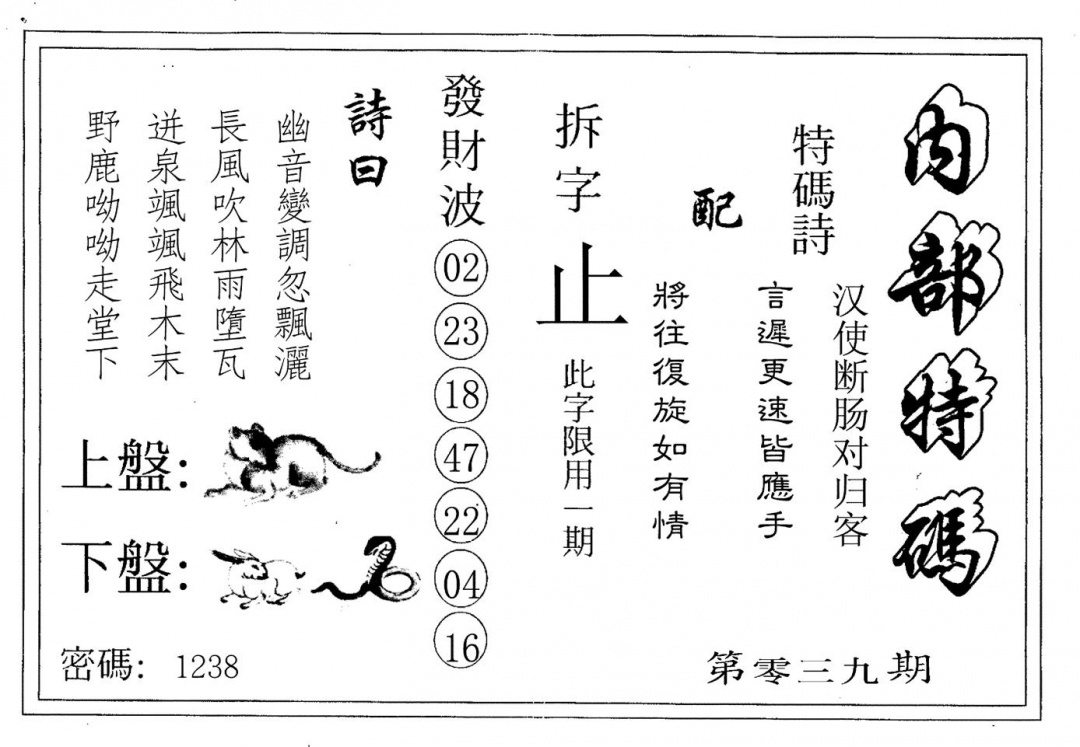 内部特碼
特碼詩
汉使断肠对归客
配
言遲更速皆應手
將往復旋如有情
拆字
止
此字限用一期
發財波
02
23
18
47
22
04
16
詩曰
幽音變調忽飄灑
長風吹林雨墮瓦
迸泉颯颯飛木末
野鹿呦呦走堂下
上盤:
下盤:
密碼: 1238
第零三九期